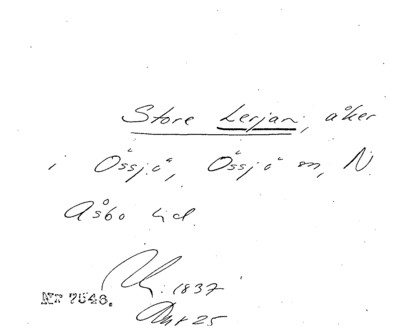 Store Lerjan, åker
i Össjö, Össjö sn, N.
Åsbo hd.
1837
Nr 7548. Akt 25